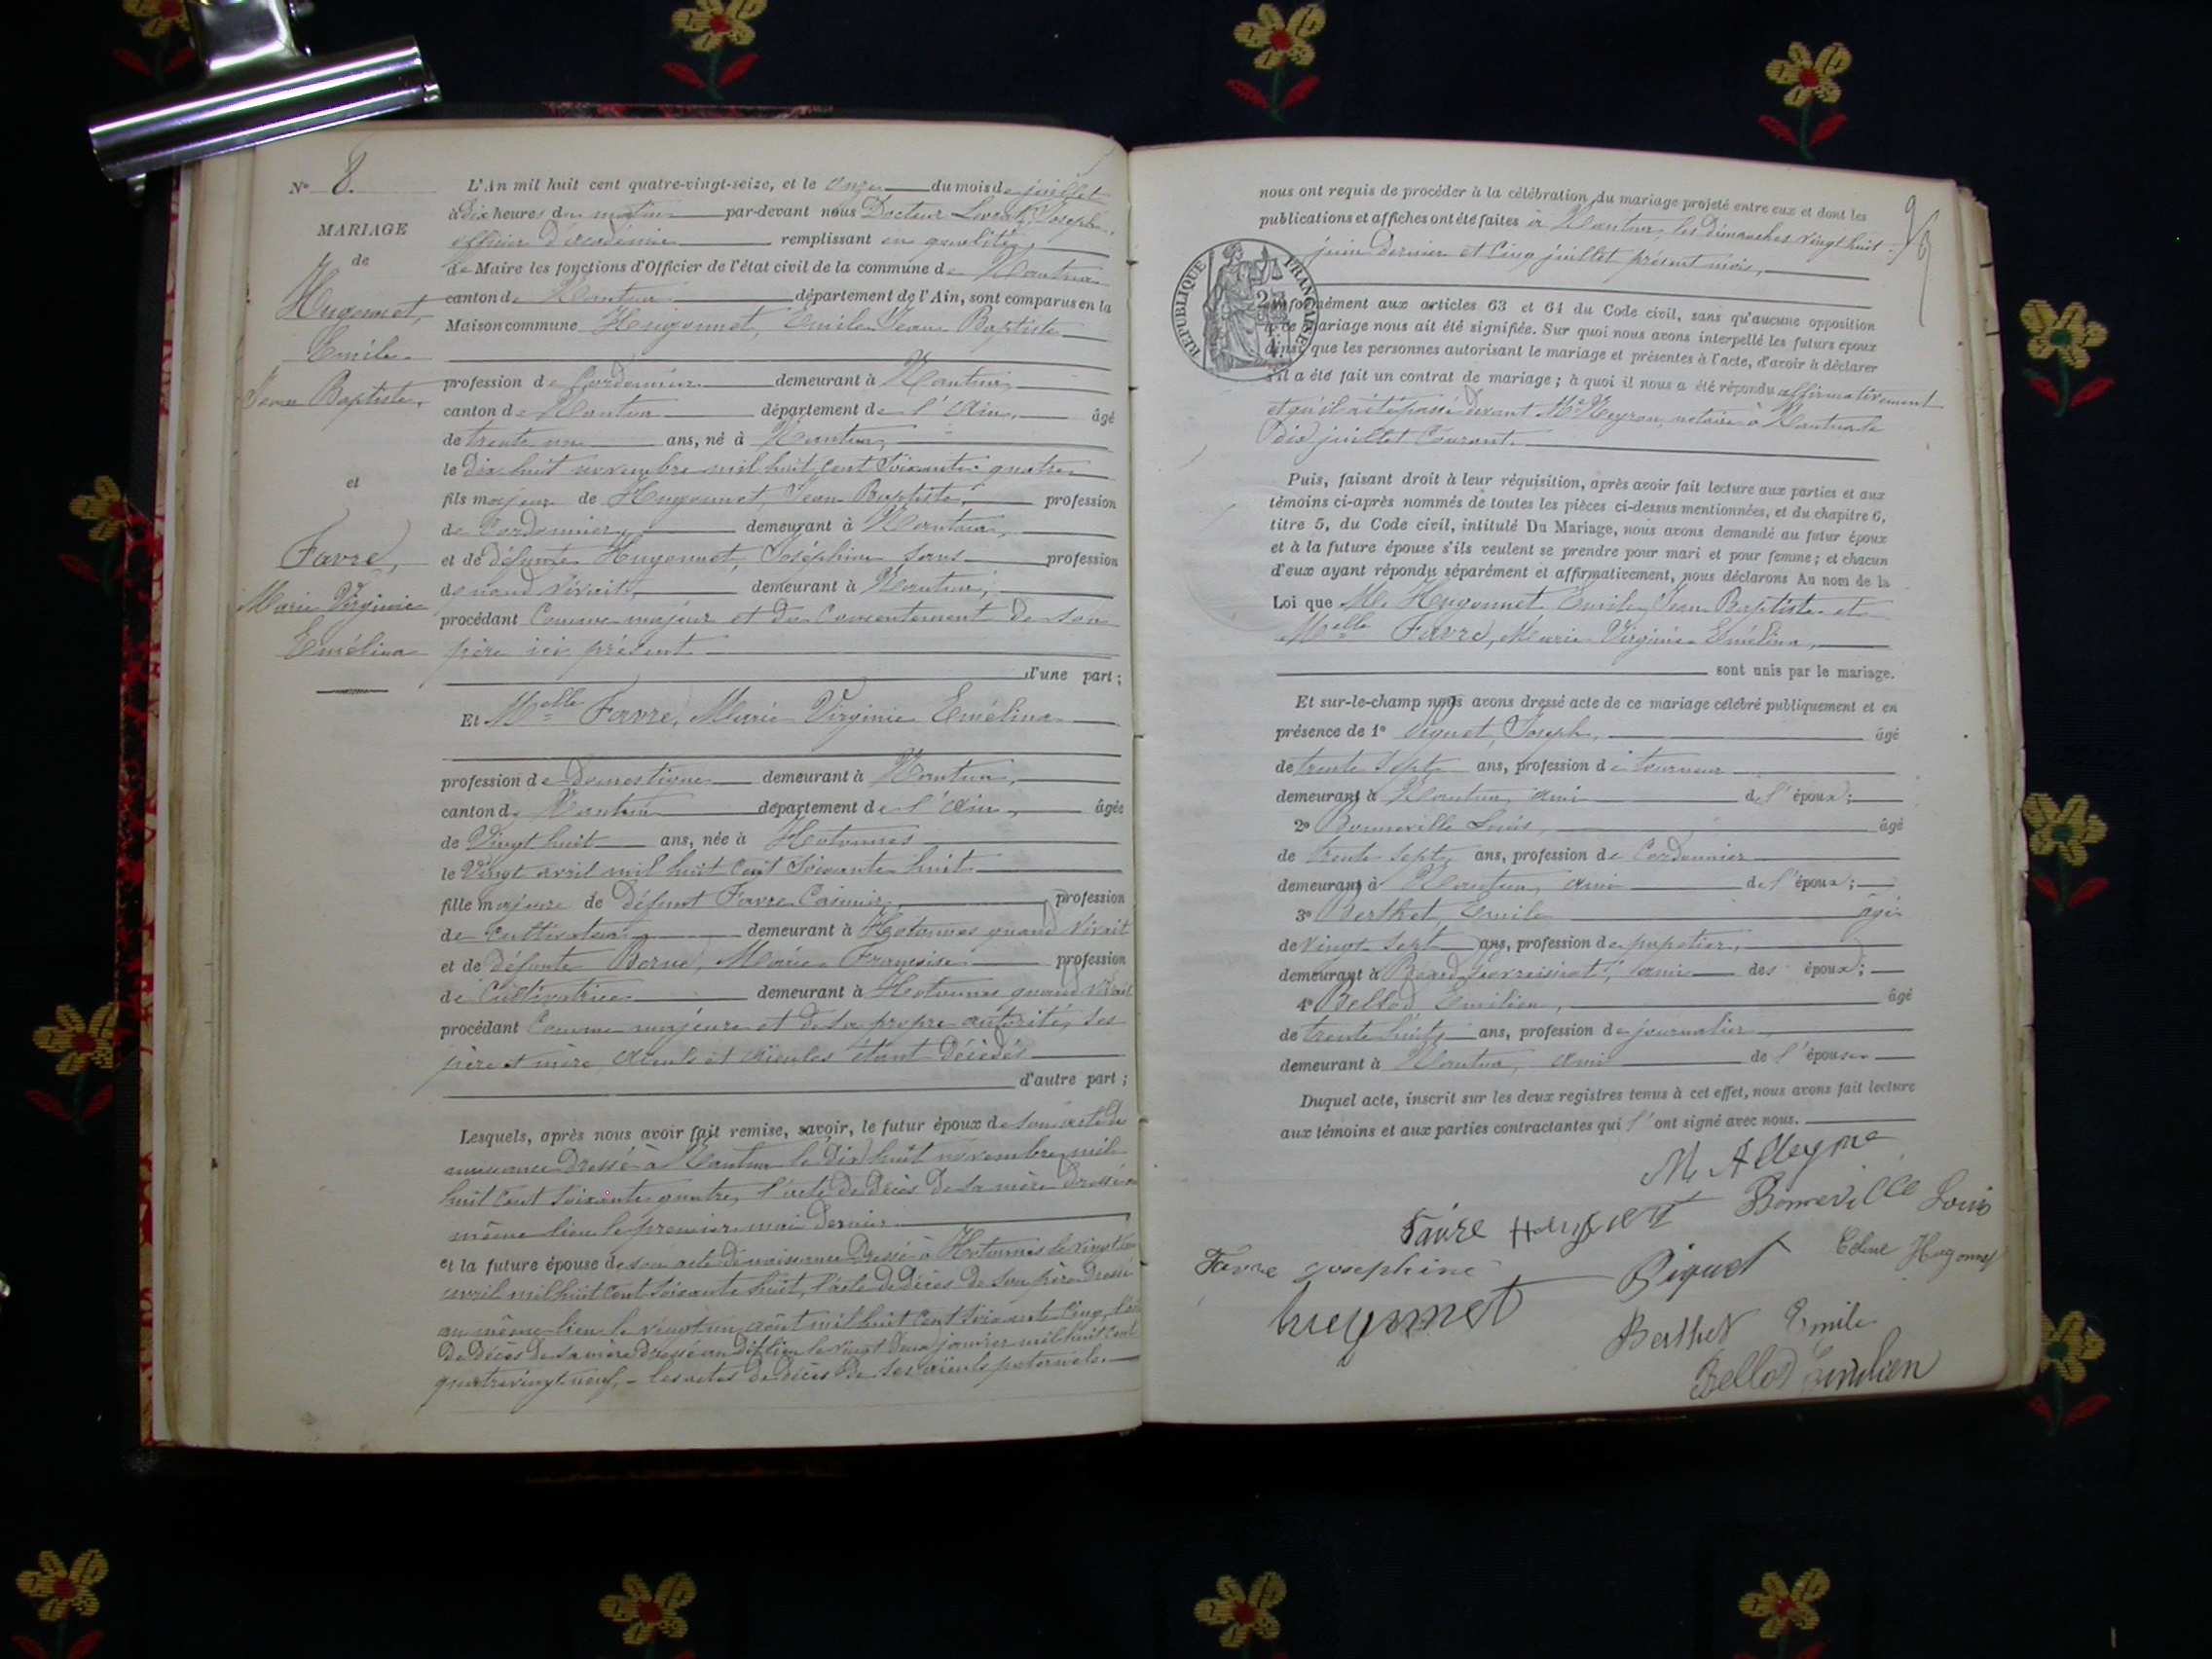 N° 8.
MARIAGE
de
Hugonnet,
Emile
Jean Baptiste,
et
Favre,
Marie Virginie
Emélina
L'An mil huit cent quatre-vingt-seize, et le onze du mois de juillet
à dix heures du matin par-devant nous Docteur Joseph,
officier d'académie remplissant en qualité
de Maire les fonctions d'Officier de l'état civil de la commune de Nantua
canton de Nantua département de l'Ain, sont comparus en la
Maison commune Hugonnet, Emile Jean Baptiste
profession de Cordonnier demeurant à Nantua
canton de Nantua département de l'Ain, âgé
de trente un ans, né à Nantua,
le dix huit novembre mil huit cent soixante quatre
fils majeur de Hugonnet, Jean Baptiste, profession
de Cordonnier, demeurant à Nantua,
et de défunte Hugonnet, Joséphine sans profession
quand vivait, demeurant à Nantua,
procédant Comme majeur et du consentement de son
père ici présent
d'une part;
Et Melle Favre, Marie Virginie Emélina
profession de Domestique demeurant à Nantua,
canton de Nantua département de l'Ain, âgée
de Vingt huit ans, née à Hotonnes
le Vingt avril mil huit cent soixante huit
fille majeure de défunt Favre Casimir, profession
de Cultivateur demeurant à Hotonnes quand vivait
et de défunte Borne, Marie Françoise profession
de Cultivatrice demeurant à Hotonnes quand vivait
procédant Comme majeure et de sa propre autorité, ses
père et mère aïeuls et aïeules étant décédés
d'autre part;
Lesquels, après nous avoir fait remise, savoir, le futur époux de son acte de
naissance dressé à Nantua le dix huit novembre mil
huit cent soixante quatre, l'acte de décès de sa mère dressé au
même lieu le premier mai dernier
et la future épouse de son acte de naissance dressé à Hotonnes le vingt
avril mil huit cent soixante huit, l'acte de décès de son père dressé
au même lieu le vingt un août mil huit cent soixante cinq, l'acte
de décès de sa mère dressé au dit lieu le vingt deux janvier mil huit cent
quatre vingt neuf, - les actes de décès de ses aïeuls paternels.
nous ont requis de procéder à la célébration du mariage projeté entre eux et dont les
publications et affiches ont été faites à Nantua, les dimanches vingt huit
juin dernier et cinq juillet présent mois,
RÉPUBLIQUE FRANÇAISE
conformément aux articles 63 et 64 du Code civil, sans qu'aucune opposition
à ce mariage nous ait été signifiée. Sur quoi nous avons interpellé les futurs époux
ainsi que les personnes autorisant le mariage et présentes à l'acte, d'avoir à déclarer
s'il a été fait un contrat de mariage; à quoi il nous a été répondu affirmativement
et qu'il a été passé devant Me notaire à Nantua le
dix juillet courant.
Puis, faisant droit à leur réquisition, après avoir fait lecture aux parties et aux
témoins ci-après nommés de toutes les pièces ci-dessus mentionnées, et du chapitre 6,
titre 5, du Code civil, intitulé Du Mariage, nous avons demandé au futur époux
et à la future épouse s'ils veulent se prendre pour mari et pour femme; et chacun
d'eux ayant répondu séparément et affirmativement, nous déclarons Au nom de la
Loi que M. Hugonnet Emile Jean Baptiste et
Melle Favre, Marie Virginie Emélina,
sont unis par le mariage.
Et sur-le-champ nous avons dressé acte de ce mariage célébré publiquement et en
présence de 1° Joseph, âgé
de trente sept ans, profession de tourneur
demeurant à Nantua, ami de l'époux;
2° Bonneville Louis, âgé
de trente sept ans, profession de Cordonnier
demeurant à Nantua, ami de l'époux;
3° Berthet, Emile âgé
de vingt sept ans, profession de papetier,
demeurant à ami des époux;
4° Bellod Emilien, âgé
de trente huit ans, profession de journalier
demeurant à Nantua, ami de l'épouse
Duquel acte, inscrit sur les deux registres tenus à cet effet, nous avons fait lecture
aux témoins et aux parties contractantes qui l'ont signé avec nous.
Favre Bonneville Louis
Favre Josephine Hugonnet
Hugonnet Berthet Emile
Bellod Emilien